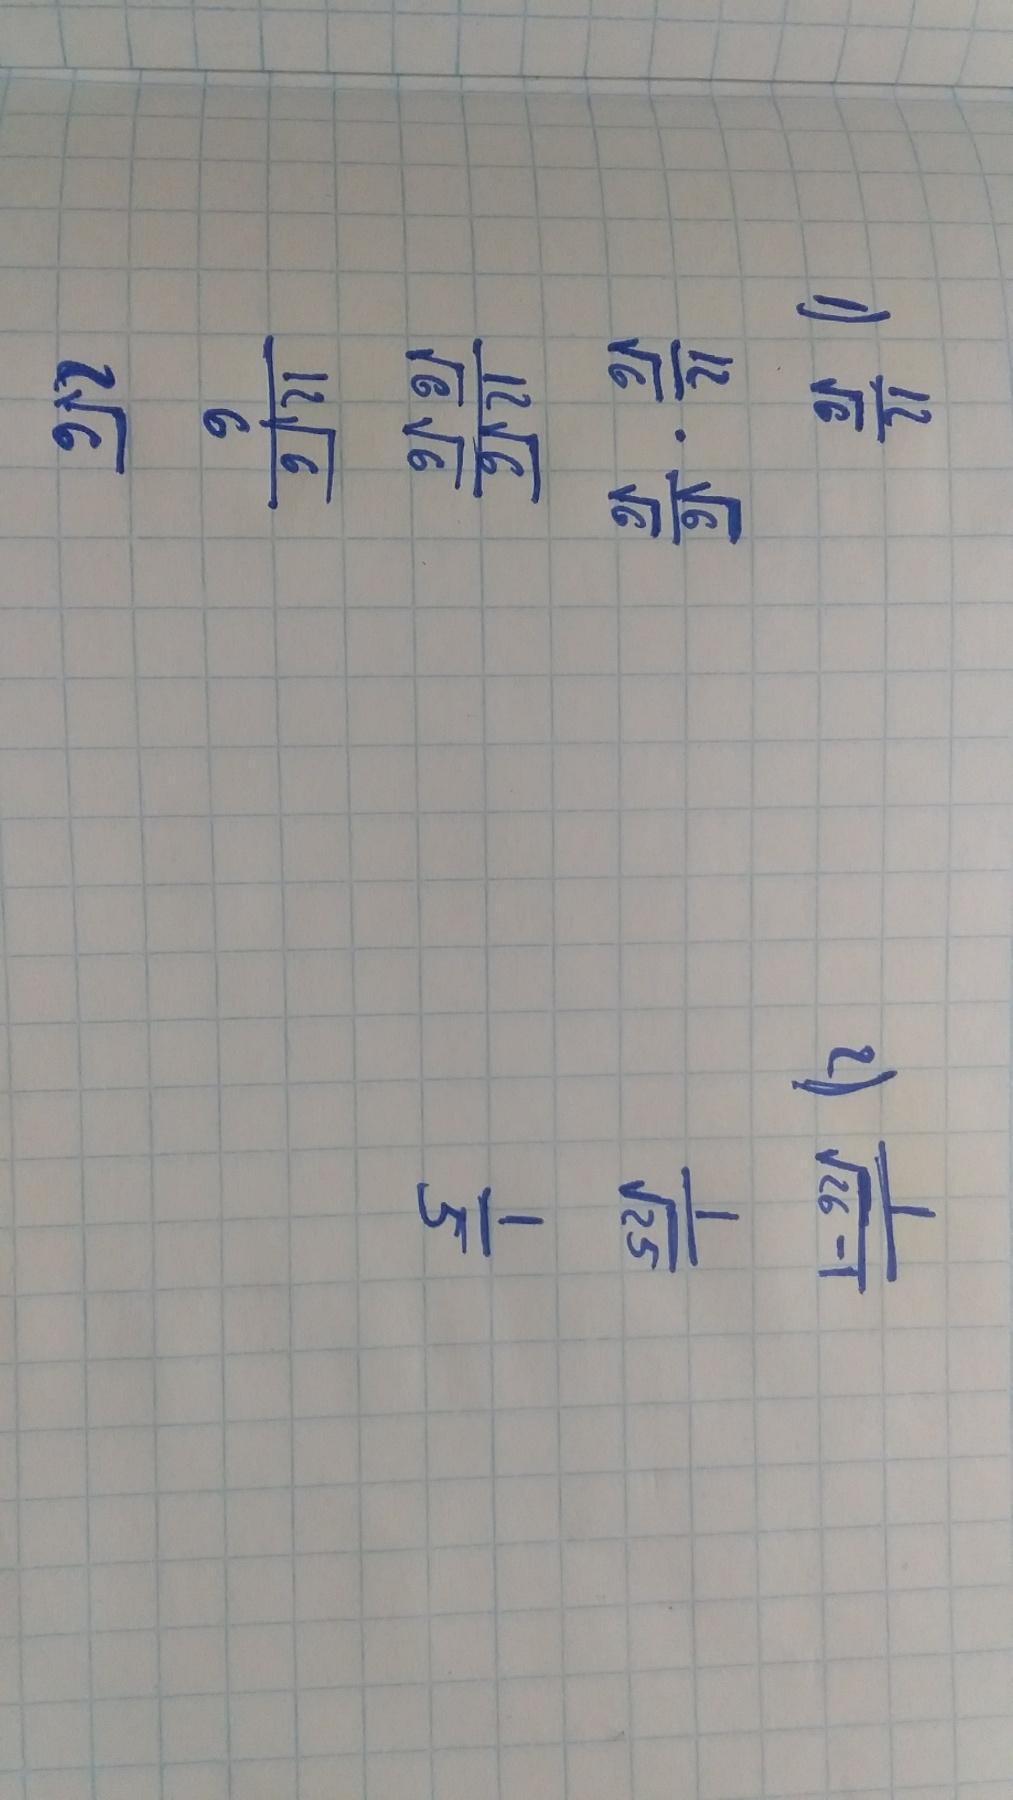 1) 12/√6
12/√6 · √6/√6
12√6/√6 √6
12√6/6
2√6
2) 1/√26-1
1/√25
1/5